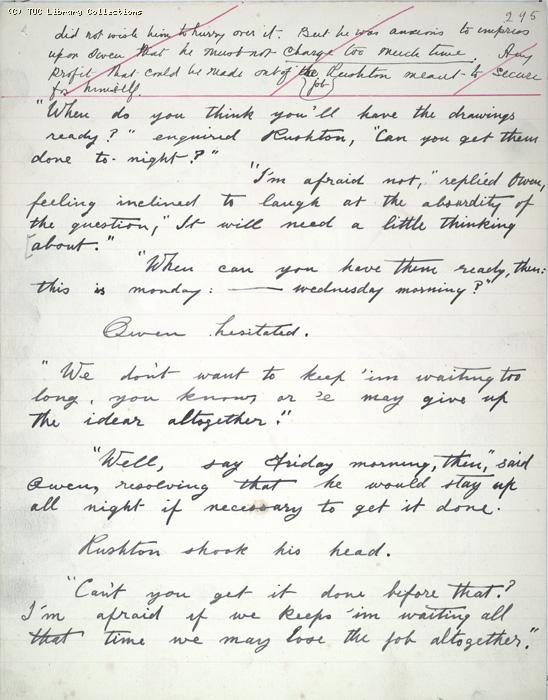 (C) TUC Library Collections
295
did not wish him to hurry over it. But he was anxious to impress
upon Owen that he must not charge too much time. Any
profit that could be made out of the Rushton meant to secure
job
for himself.
"When do you think you'll have the drawings
ready?" enquired Rushton, "Can you get them
done to-night?"
"I'm afraid not," replied Owen,
feeling inclined to laugh at the absurdity of
the question, "It will need a little thinking
about."
"When can you have them ready, then:
this is monday: — wednesday morning?"
Owen hesitated.
"We don't want to keep 'im waiting too
long, you know, or 'e may give up
the idear altogether."
"Well, say Friday morning, then," said
Owen, resolving that he would stay up
all night if necessary to get it done.
Rushton shook his head.
"Can't you get it done before that?
I'm afraid if we keeps 'im waiting all
that time we may lose the job altogether."